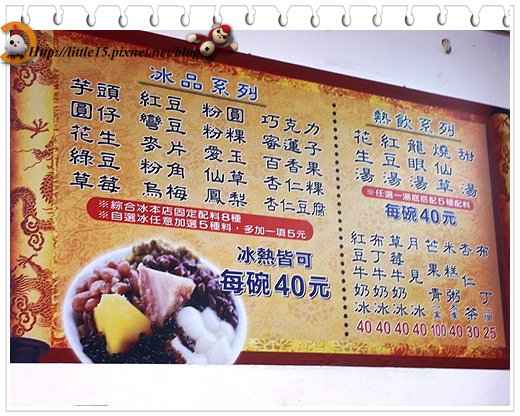 Http://little15.pixnet.net/blog
冰品系列
芋頭 紅豆 粉圓 巧克力
圓仔 彎豆 粉粿 蜜蓮子
花生 麥片 愛玉 百香果
綠豆 粉角 仙草 杏仁粿
草莓 烏梅 鳳梨 杏仁豆腐
※綜合冰本店固定配料8種
※自選冰任意加選5種料,多加一項5元
冰熱皆可
每碗40元
熱飲系列
花生湯
紅豆湯
龍眼湯
燒仙草
甜湯
※任選一湯底搭配5種配料
每碗40元
紅豆牛奶冰 40
布丁牛奶冰 40
草莓牛奶冰 40
月見冰 40
芒果青 100
米糕粥 40
杏仁茶 30
布丁 25